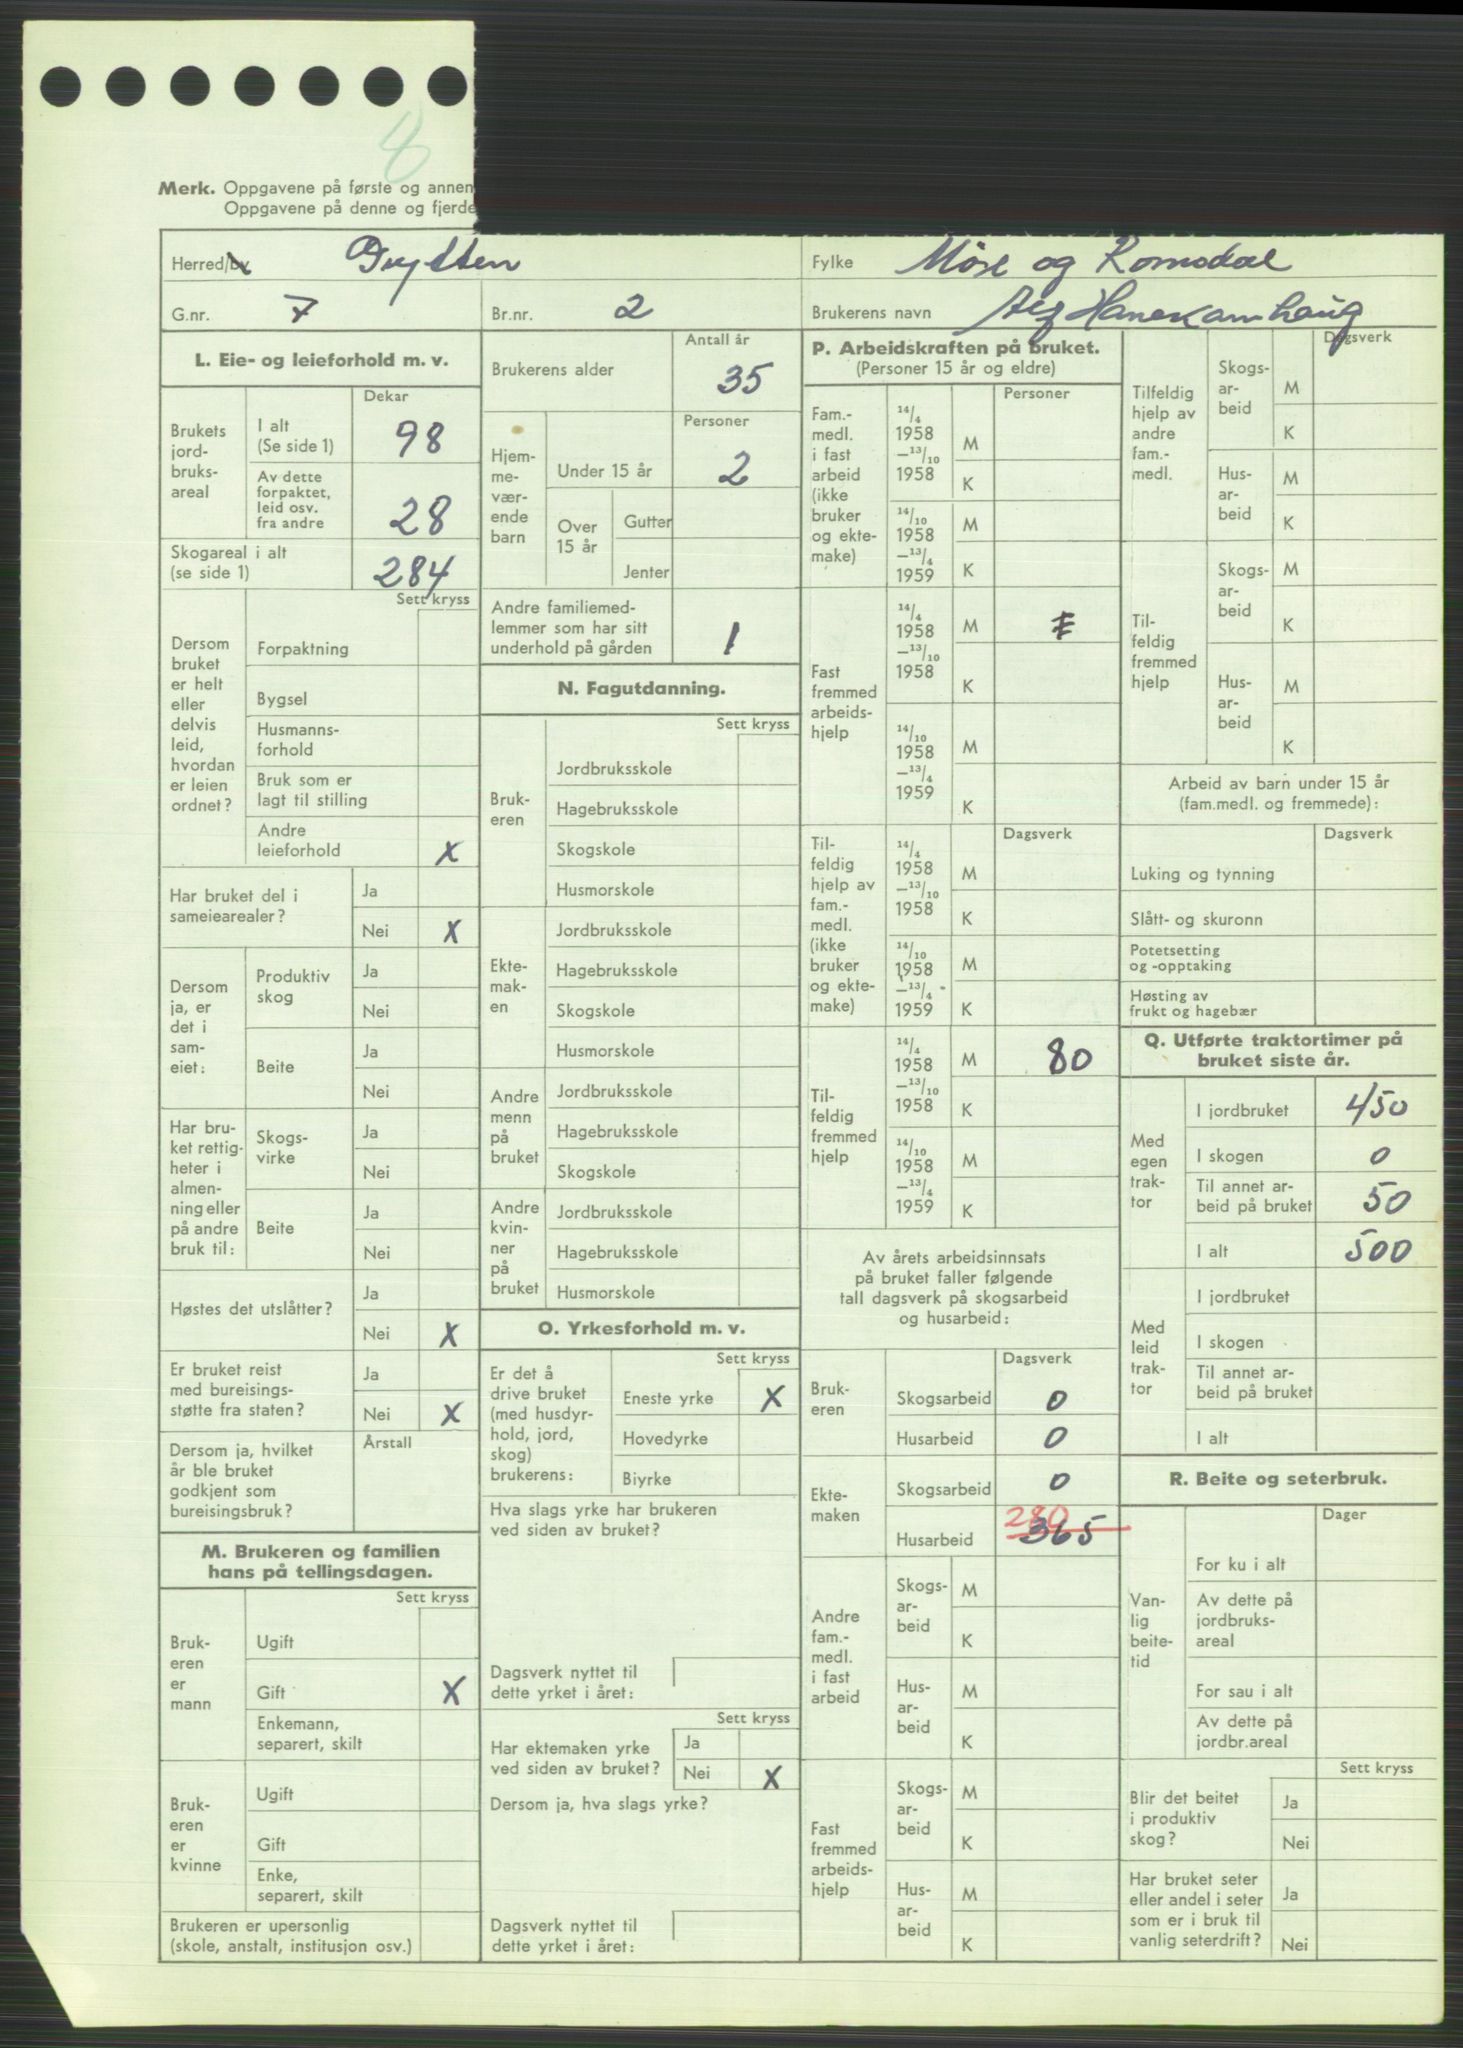 8
Merk. Oppgavene på første og annen
Oppgavene på denne og fjerde
Herred/by Grytten
Fylke Møre og Romsdal
G.nr. 7
Br.nr. 2
Brukerens navn Alf Hanekamhaug
L. Eie- og leieforhold m. v.
Dekar
Brukets jord-bruks-areal
I alt (Se side 1) 98
Av dette forpaktet, leid osv. fra andre 28
Skogareal i alt (se side 1) 284
Sett kryss
Dersom bruket er helt eller delvis leid, hvordan er leien ordnet?
Forpaktning
Bygsel
Husmanns-forhold
Bruk som er lagt til stilling
Andre leieforhold X
Har bruket del i sameiearealer?
Ja
Nei X
Dersom ja, er det i sam-eiet:
Produktiv skog
Ja
Nei
Beite
Ja
Nei
Har bru-ket rettig-heter i almen-ning eller på andre bruk til:
Skogs-virke
Ja
Nei
Beite
Ja
Nei
Høstes det utslåtter?
Ja
Nei X
Er bruket reist med bureisings-støtte fra staten?
Ja
Nei X
Dersom ja, hvilket år ble bruket godkjent som bureisingsbruk?
Årstall
M. Brukeren og familien hans på tellingsdagen.
Sett kryss
Bruk-eren er mann
Ugift
Gift X
Enkemann, separert, skilt
Bruk-eren er kvinne
Ugift
Gift
Enke, separert, skilt
Brukeren er upersonlig (skole, anstalt, institusjon osv.)
Antall år
Brukerens alder 35
Personer
Hjem-me-vær-ende barn
Under 15 år 2
Over 15 år
Gutter
Jenter
Andre familiemed-lemmer som har sitt underhold på gården 1
N. Fagutdanning.
Sett kryss
Bruk-eren
Jordbruksskole
Hagebruksskole
Skogskole
Husmorskole
Ekte-mak-en
Jordbruksskole
Hagebruksskole
Skogskole
Husmorskole
Andre menn på bruket
Jordbruksskole
Hagebruksskole
Skogskole
Andre kvin-ner på bruket
Jordbruksskole
Hagebruksskole
Husmorskole
O. Yrkesforhold m. v.
Sett kryss
Er det å drive bruket (med husdyr-hold, jord, skog) brukerens:
Eneste yrke X
Hovedyrke
Biyrke
Hva slags yrke har brukeren ved siden av bruket?
Dagsverk nyttet til dette yrket i året:
Sett kryss
Har ektemaken yrke ved siden av bruket?
Ja
Nei X
Dersom ja, hva slags yrke?
Dagsverk nyttet til dette yrket i året:
P. Arbeidskraften på bruket.
(Personer 15 år og eldre)
Personer
Fam.-medl. i fast arbeid (ikke bruker og ekte-make)
14/4 1958 —13/10 1958
M
K
14/10 1958 —13/4 1959
M
K
Fast fremmed arbeids-hjelp
14/4 1958 —13/10 1958
M
K
14/10 1958 —13/4 1959
M
K
Dagsverk
Til-feldig hjelp av fam.-medl. (ikke bruker og ekte-make)
14/4 1958 —13/10 1958
M
K
14/10 1958 —13/4 1959
M
K
Til-feldig fremmed hjelp
14/4 1958 —13/10 1958
M 80
K
14/10 1958 —13/4 1959
M
K
Av årets arbeidsinnsats på bruket faller følgende tall dagsverk på skogsarbeid og husarbeid:
Dagsverk
Bruk-eren
Skogsarbeid 0
Husarbeid 0
Ekte-maken
Skogsarbeid 0
Husarbeid 280 365
Andre fam.-medl. i fast arbeid
Skogs-ar-beid
M
K
Hus-ar-beid
M
K
Fast fremmed arbeids-hjelp
Skogs-ar-beid
M
K
Hus-ar-beid
M
K
Dagsverk
Tilfeldig hjelp av andre fam.-medl.
Skogs-ar-beid
M
K
Hus-ar-beid
M
K
Til-feldig fremmed hjelp
Skogs-ar-beid
M
K
Hus-ar-beid
M
K
Arbeid av barn under 15 år (fam.medl. og fremmede):
Dagsverk
Luking og tynning
Slått- og skuronn
Potetsetting og -opptaking
Høsting av frukt og hagebær
Q. Utførte traktortimer på bruket siste år.
Med egen trak-tor
I jordbruket 450
I skogen 0
Til annet ar-beid på bruket 50
I alt 500
Med leid trak-tor
I jordbruket
I skogen
Til annet ar-beid på bruket
I alt
R. Beite og seterbruk.
Dager
Van-lig beite-tid
For ku i alt
Av dette på jordbruks-areal
For sau i alt
Av dette på jordbr.areal
Sett kryss
Blir det beitet i produktiv skog?
Ja
Nei
Har bruket seter eller andel i seter som er i bruk til vanlig seterdrift?
Ja
Nei